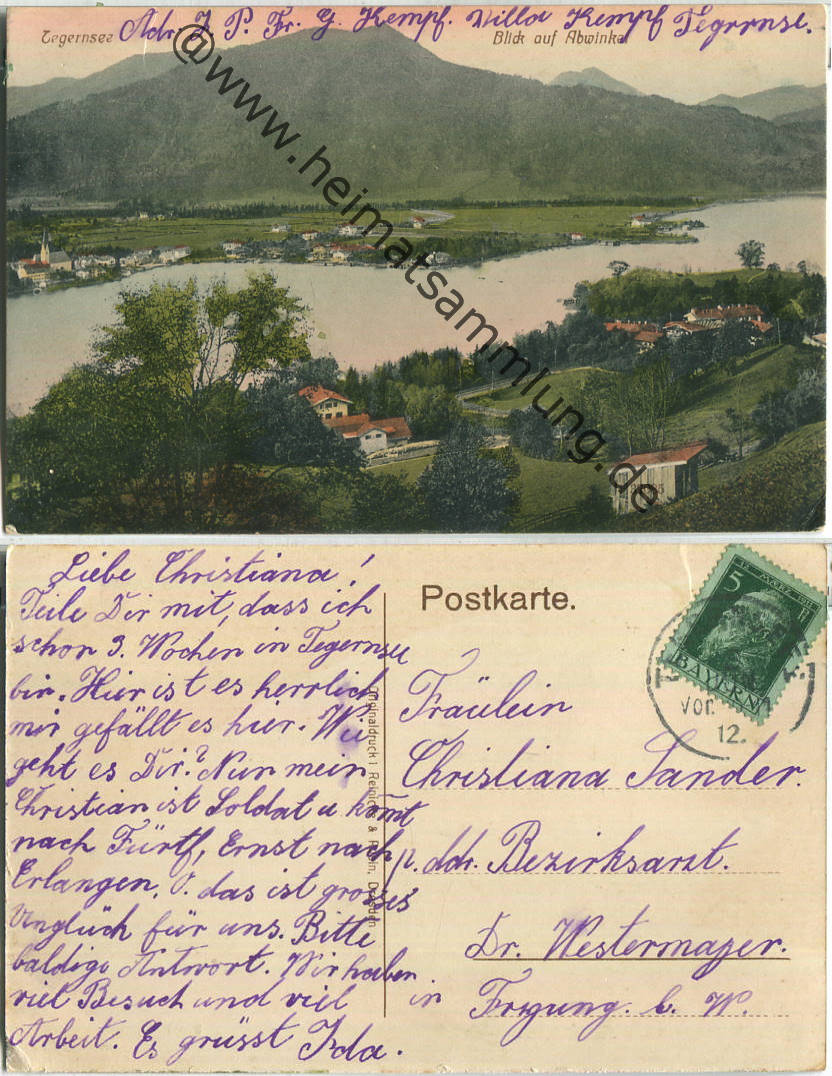 Tegernsee
Blick auf Abwinkel
Adr. J. P. Fr. G. Kempf. Villa Kempf Tegrrnse.
@www.heimatsammlung.de
Liebe Christiana!
Teile Dir mit, dass ich
schon 3. Wochen in Tegernsee
bin. Hier ist es herrlich
mir gefällt es hier. Wie
geht es Dir? Nun mein
Christian ist Soldat u kom̅t
nach Fürth, Ernst nach
Erlangen. O. das ist grosses
Unglück für uns. Bitte
baldige Antwort. Wir haben
viel Besuch und viel
Arbeit. Es grüsst Ida.
Originaldruck Reinicke & Rubin, Dresden
Postkarte.
12. MÄRZ 1911
5
BAYERN
Vor.
12.
Fräulein
Christiana Sander.
p. ddr. Bezirksarzt.
Dr. Westermayer.
in Frgung. b. W.